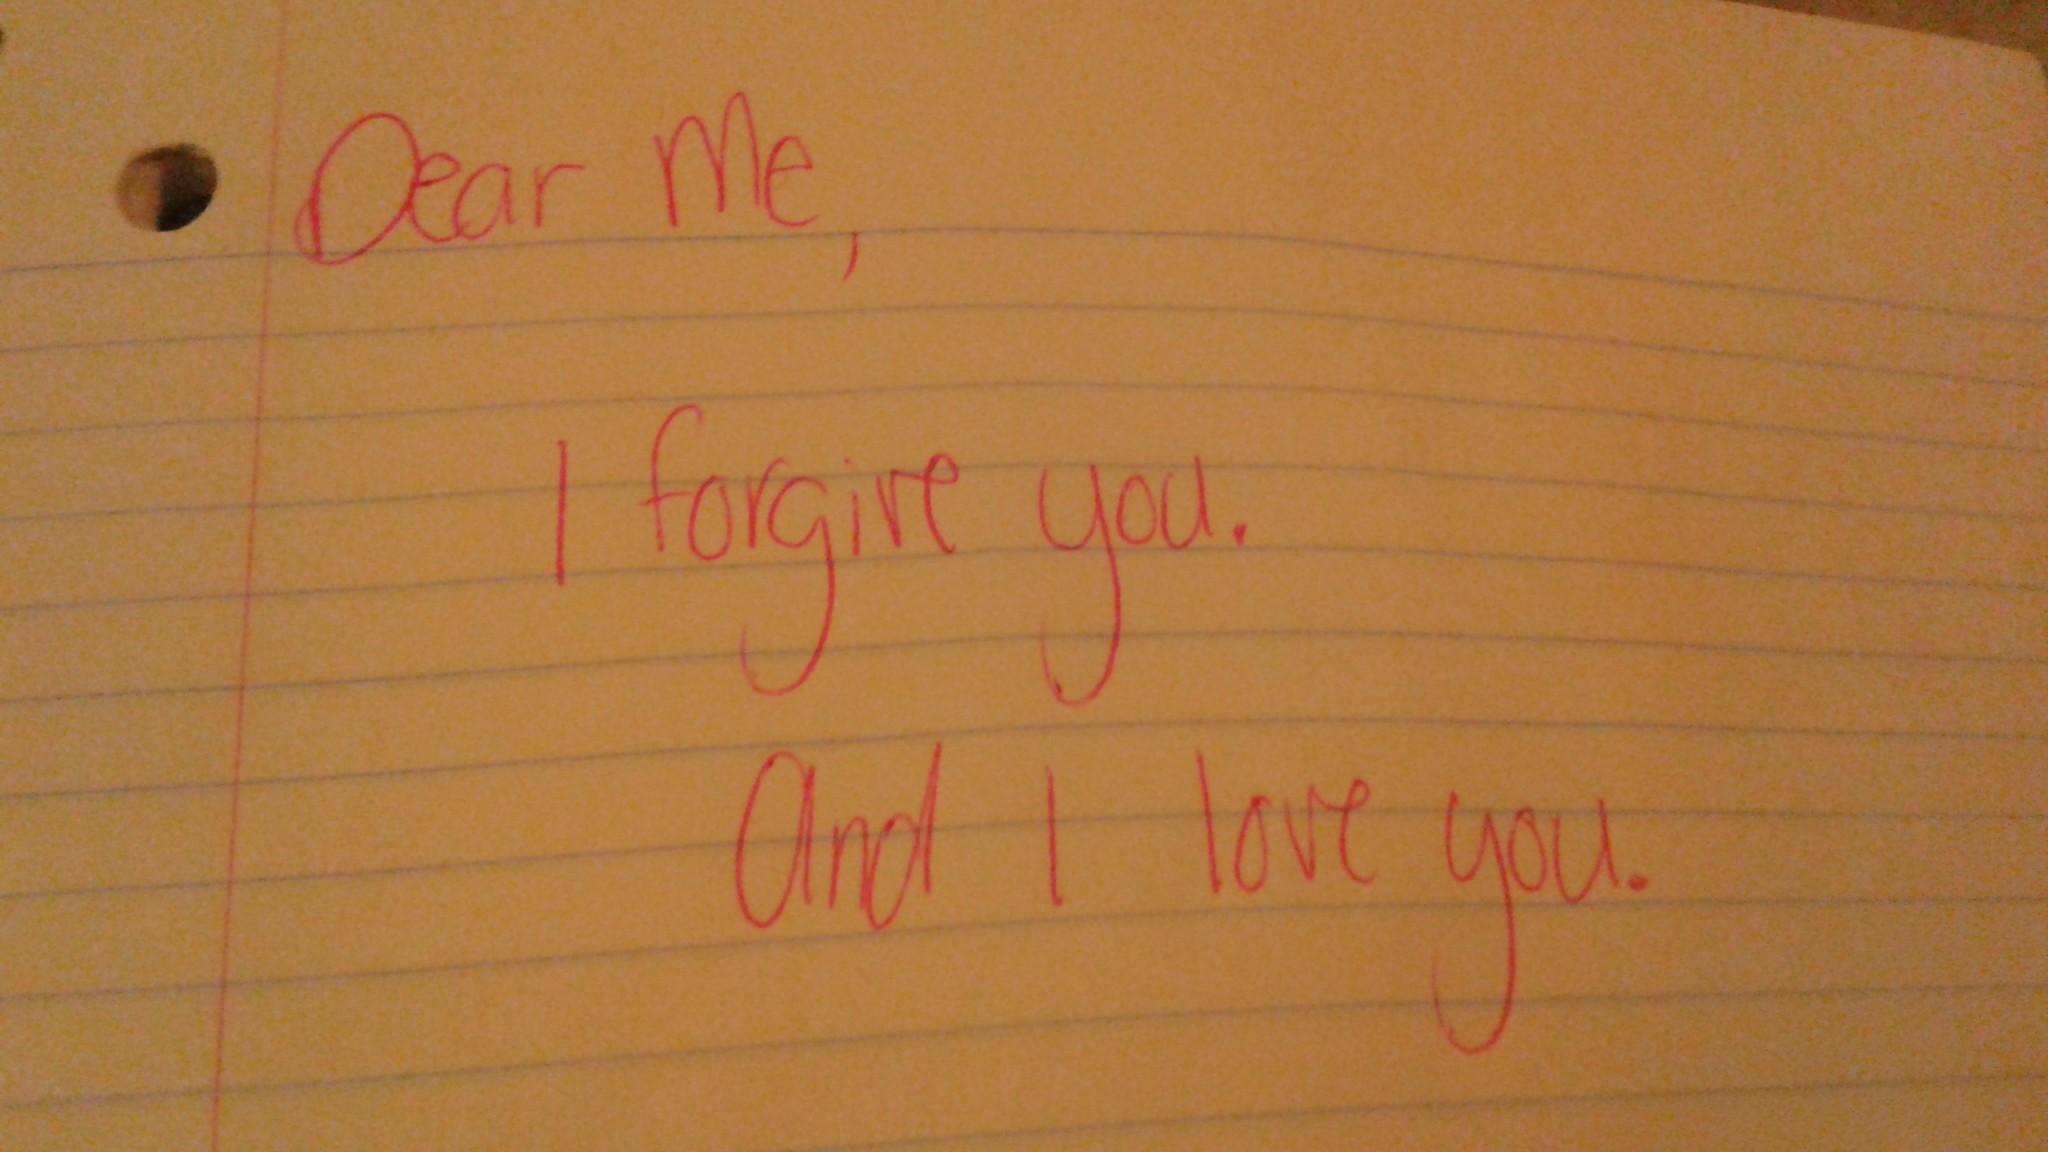 Dear Me,
I forgive you.
And I love you.